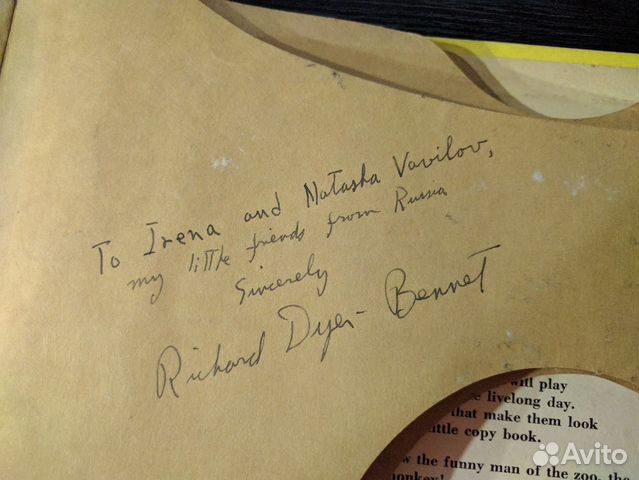 To Irena and Natasha Vavilov,
my little friends from Russia
Sincerely
Richard Dyer-Bennet
will play
livelong day.
that make them look
little copy book.
the funny man of the zoo, the
monkey!
Avito